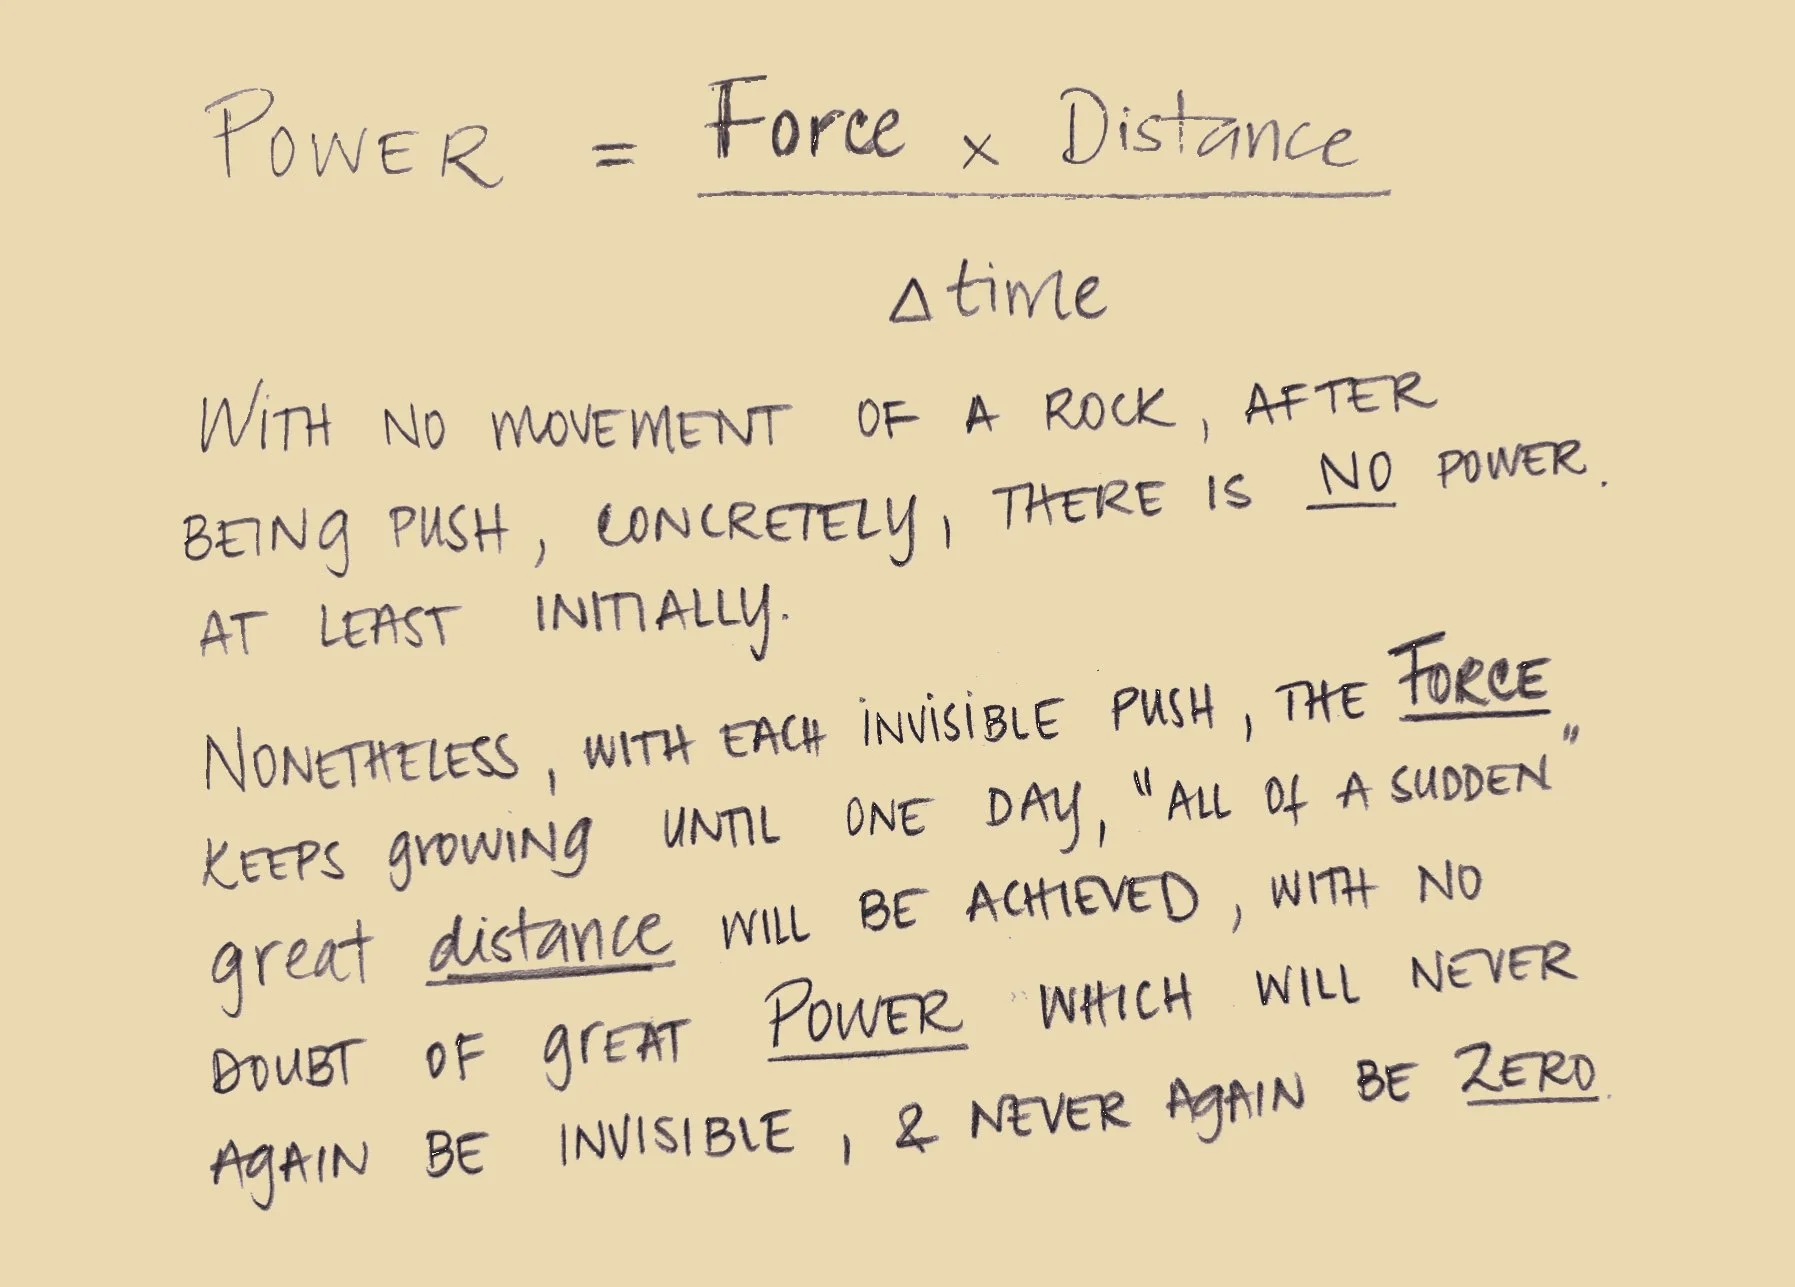 POWER = Force x Distance
Δ time
WITH NO MOVEMENT OF A ROCK, AFTER
BEING PUSH, CONCRETELY, THERE IS NO POWER.
AT LEAST INITIALLY.
NONETHELESS, WITH EACH INVISIBLE PUSH, THE FORCE
KEEPS growing UNTIL ONE DAY, "ALL Of A SUDDEN"
great distance WILL BE ACHIEVED, WITH NO
DOUBT OF great POWER WHICH WILL NEVER
AGAIN BE INVISIBLE, & NEVER AGAIN BE ZERO.